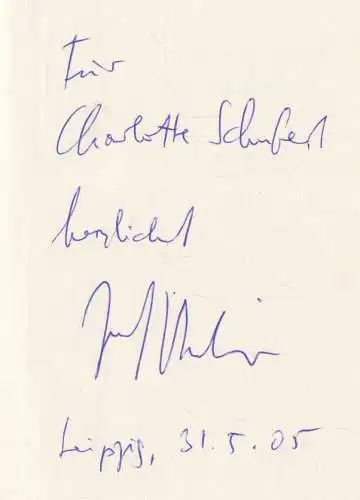 Für
Charlotte Schubert
herzlichst
Leipzig, 31.5.05